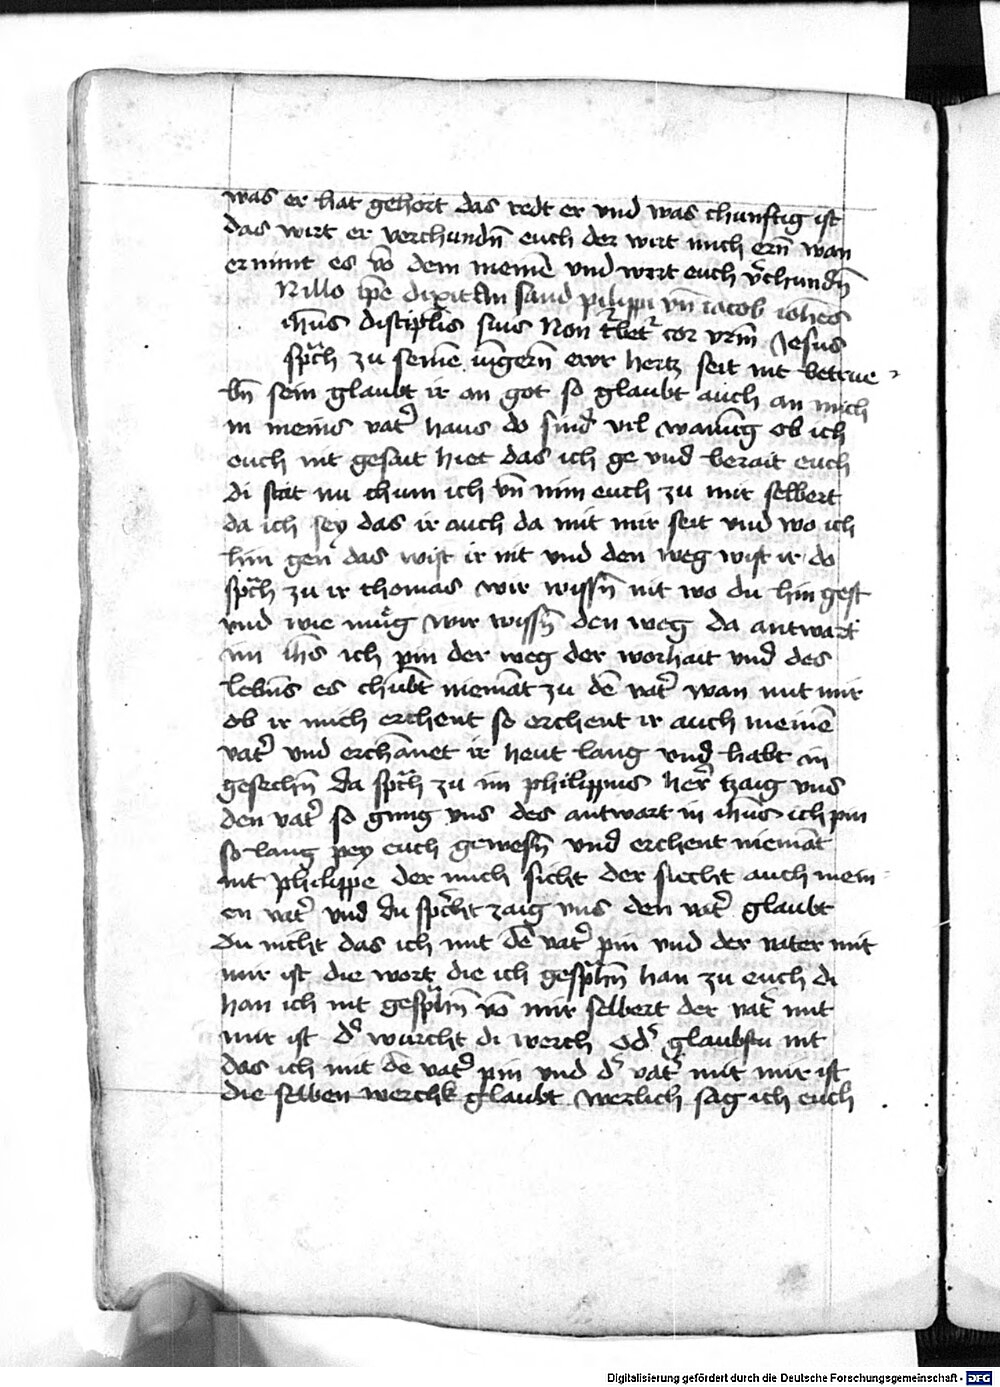 was er hat gehört das redt er vnd was chunftig ist
das wirt er verchundn̄ euch der wirt mich ern̄ wan
er nimt es vō dem meinē vnd wirt euch v̄chundn̄
N illo tp̄e dixit An sand pilippi vn̄ iacob ioh̄es
ih̄us discipl̄is suis Non t̄bet᷑ cor vr̄m Jesus
sp̄ch zu seinē iūngern̄ ewr hertz seit nit betrue
bn̄ sein glaubt ir an got so glaubt auch an mich
in meins vat᷑ haus do sind vil wanūg ob ich
euch nit gesait hiet das ich ge vnd berait euch
di stat nu chum ich vn̄ nim euch zu mir selbert
da ich sey das ir auch da mit mir seit vnd wo ich
hin gen das wist ir nit vnd den weg wist ir do
sp̄ch zu ir thomas wir wissn̄ nit wo du hin gest
vnd wie mug wir wissn̄ den weg da antwart
im ih̄s ich pin der weg der worhait vnd des
lebn̄s es chūbt niemāt zu dē vat᷑ wan mit mir
ob ir mich erchent so erchent ir auch meinē
vat᷑ vnd erchānet ir heut lang vnd habt in
gesechn̄ da sp̄ch zu im philippus her᷑ tzaig vns
den vat᷑ so gnug vns des antwart in ih̄us ich pin
so lang pey euch gewesn̄ vnd erchent niemāt
nit philippe der mich sicht der siecht auch mein
en vat᷑ vnd du sp̄cht zaig vns den vat᷑ glaubt
du nicht das ich mit dē vat᷑ pin vnd der vater mit
mir ist die wort die ich gesp̄chn̄ han zu euch di
han ich nit gesp̄chn̄ vō mir selbert der vat᷑ mit
mir ist d᷑ wurcht di werch od᷑ glaubstu nit
das ich mit dē vat᷑ pin vnd d᷑ vat᷑ mit mir ist
die selben werchk glaubt werlich sag ich euch
Digitalisierung gefördert durch die Deutsche Forschungsgemeinschaft - DFG